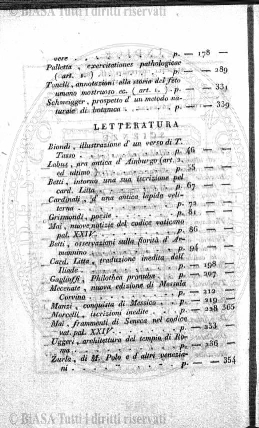 © BIASA Tutti i diritti riservati
vere . . . . . . p. — 178 —
Palletta, exercitationes pathologicae
(art. 1.) . . . . . p. — 289
Tonelli, annotazioni alla storia del feto
umano mostruoso ec. (art. 1.) p. — 331
Schweigger, prospetto d'un metodo na-
turale di botanica . . . p. — 339
LETTERATURA
Biondi, illustrazione d'un verso di T.
Tasso . . . . . p. 46 — —
Labus, ara antica d'Amburgo (art. 2.
ed ultimo) . . . . p. 55 —
Betti, intorno una sua iscrizione pel
card. Litta . . . . p. 67 —
Cardinali, d'una antica lapida veli-
terna . . . . . p. 72 —
Grismondi, poesie . . . p. 81 —
Mai, nuove notizie del codice vaticano
pal. XXIV. . . . . p. 86 — —
Betti, osservazioni sulla fiorità d'Ar-
mannino . . . . . p. 94 —
Card. Litta, traduzione inedita dell'
Iliade . . . . . p. — 198 —
Gagliuffi, Philothea promula . p. — 207 —
Mecenate, nuova edizione di Messala
Corvino . . . . . p. — 212 —
Manzi, conquista di Messico . p. — 219 —
Morcelli, iscrizioni inedite . p. — 228 365
Mai, frammenti di Seneca nel codice
vat. pal. XXIV. . . . p. — 233 —
Uggeri, architettura del tempio di Ro-
ma . . . . . . p. — 286 —
Zurla, di M. Polo e d'altri venezia-
ni . . . . . . p. — 354
© BIASA Tutti i diritti riservati